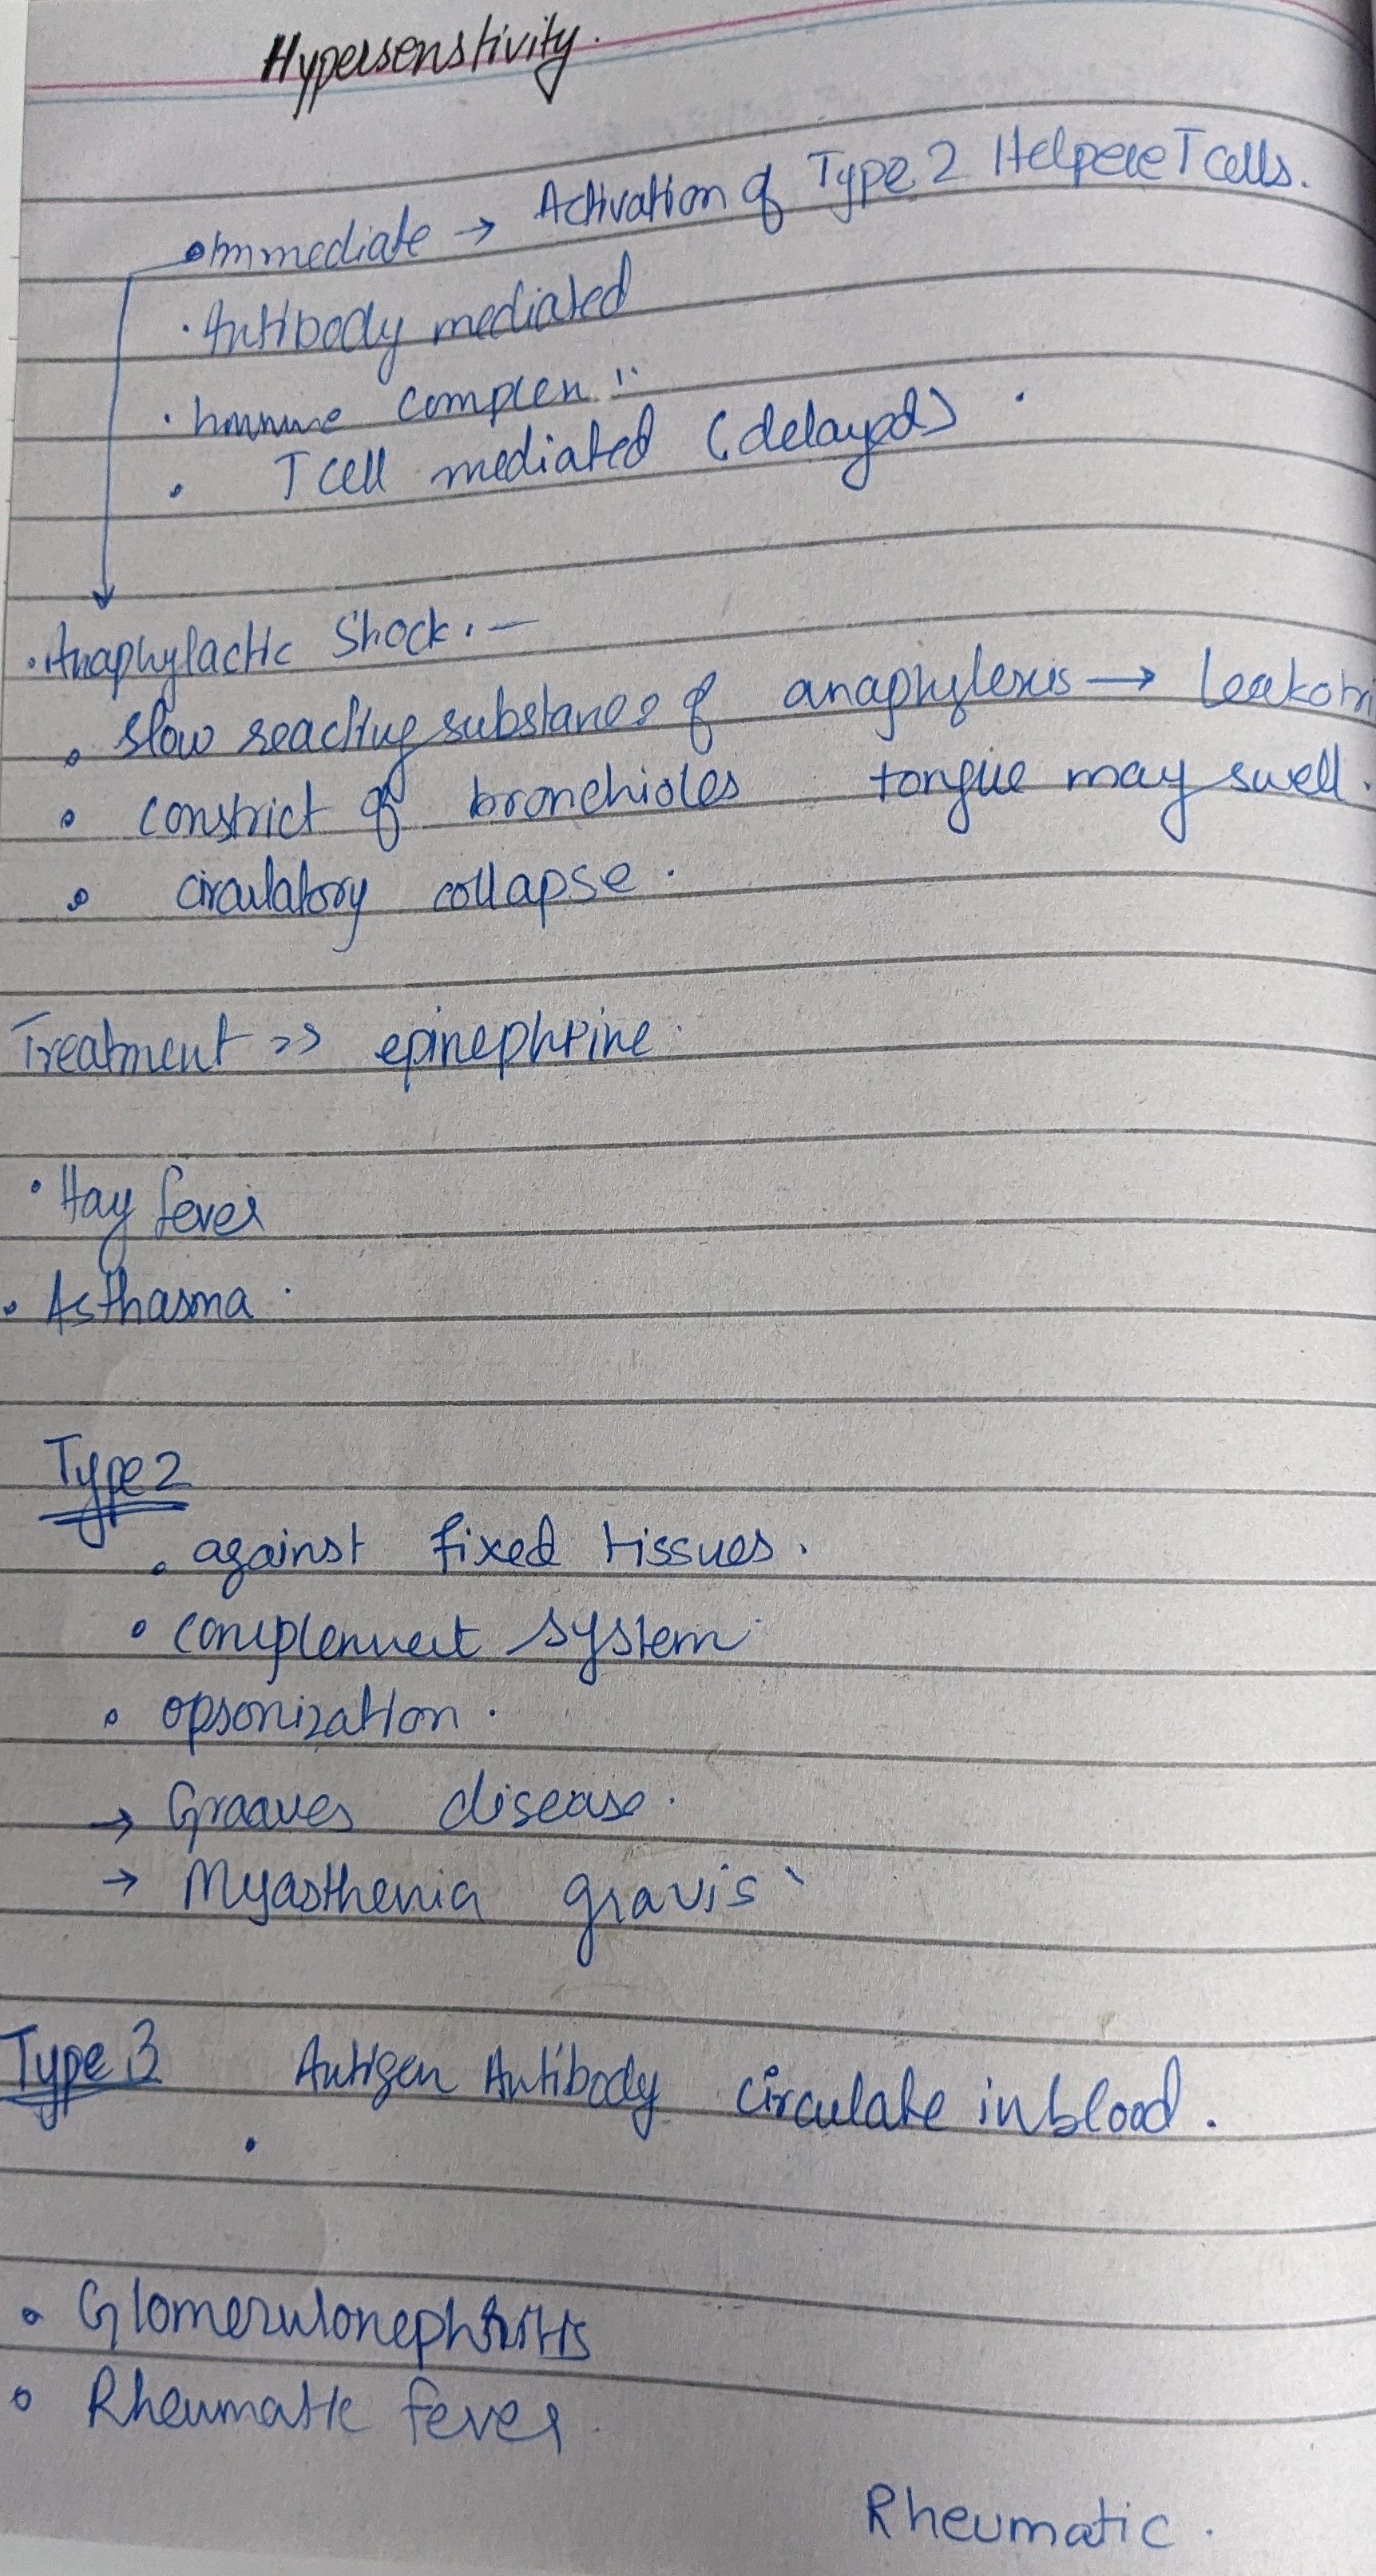 Hypersenstivity.
• Immediate → Activation of Type 2 Helpere T cells.
• Antibody mediated
• Immune complex "
• T cell mediated (delayed)
• Anaphylactic Shock. —
• slow reacting substance of anaphylexis → Leakotri
• constrict of bronchioles tongue may swell.
• circulatory collapse.
Treatment => epinephrine
• Hay fever
• Asthasma
Type 2
• against fixed tissues.
• complement system
• opsonization.
→ Graaves disease.
→ Myasthenia gravis
Type 3 Antigen Antibody circulate in blood.
•
• Glomerulonephritis
• Rheumatic fever
Rheumatic.